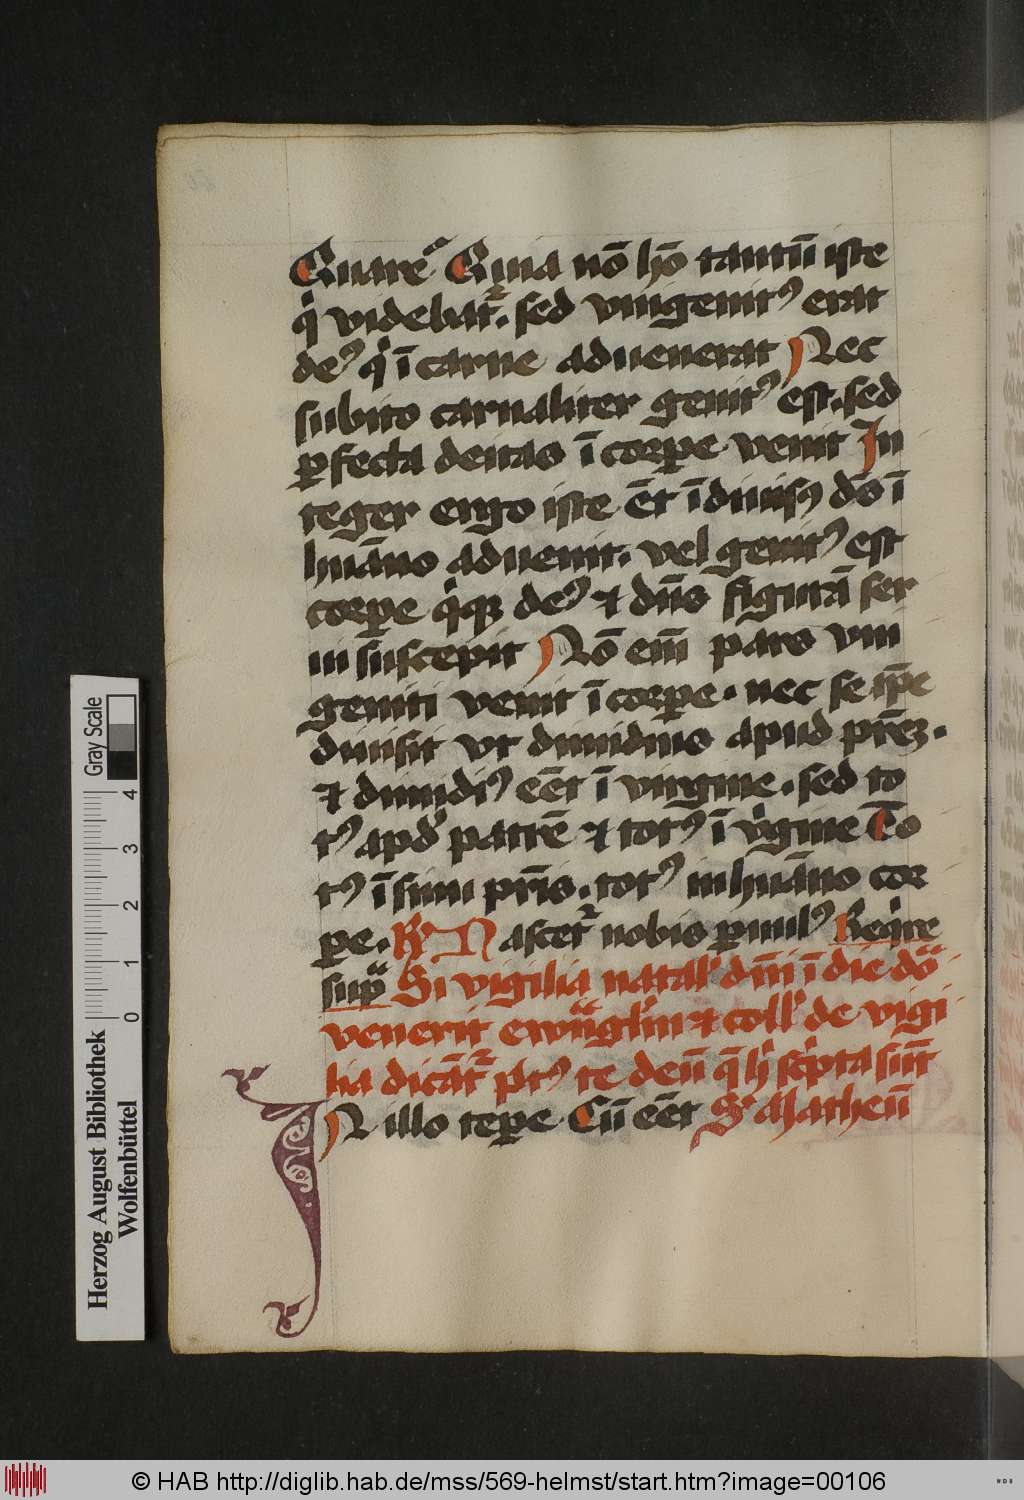 Quareᷓ Quia nō hō tantū iste
qͥ videbatᷣ. sed vnigenitꝰ erat
deꝰ qͥ ī carne aduenerat Nec
subito carnaliter genitꝰ est. sed
ꝑfecta deitas ī corꝑe venit In
teger ergo iste ēt īdiuisꝰ dō ī
huāno aduenit. vel genitꝰ est
corꝑe qͥqꝫ deꝰ ⁊ dn̄s figurā ser
ui suscepit Nō em̄ pars vni
geniti venit ī corꝑe. nec se ip̄e
diuisit vt dimidius apud pr̄eꝫ.
⁊ dimidiꝰ eēt ī virgine. sed to
tꝰ apd̓ patrē ⁊ totꝰ ī vͥgine To
tꝰ ī sinu pr̄is. totꝰ in huāno cor
ꝑe. R̓ Nasceťᷣ nobis ꝑuulꝰ Reqͥre
supᷓ Si vigilia natal̓ dn̄i ī die dōᷓ
venerit ewᷓngl̓iū ⁊ coll̓ de vigi
lia dicātᷣ p̄tꝰ te deū q̄ hͥ scͥpta sūt
IN illo teꝑe Cū eēt S̓ Matheū
Gray Scale
4
3
2
1
0
Herzog August Bibliothek
Wolfenbüttel
© HAB http://diglib.hab.de/mss/569-helmst/start.htm?image=00106